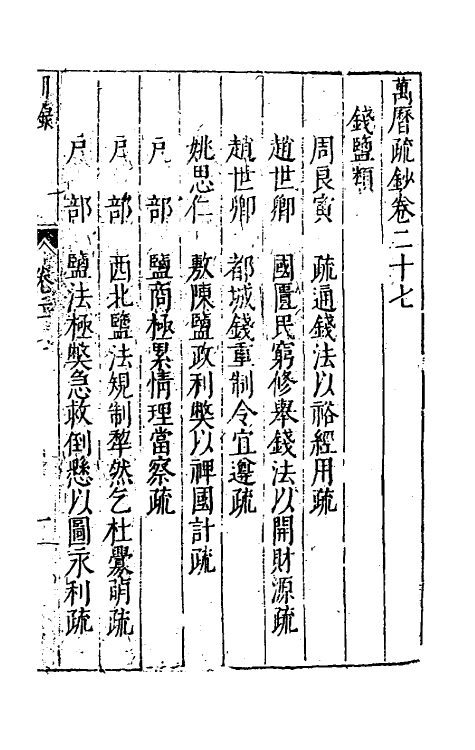 萬曆疏鈔卷二十七
錢鹽類
周良寅 疏通錢法以裕經用疏
趙世卿 國匱民窮修舉錢法以開財源疏
趙世卿 都城錢重制令宜遵疏
姚思仁 敷陳鹽政利弊以裨國計疏
戶部 鹽商極累情理當察疏
戶部 西北鹽法規制犂然乞杜釁萌疏
戶部 鹽法極弊急救倒懸以圖永利疏
目錄 卷二十七 一